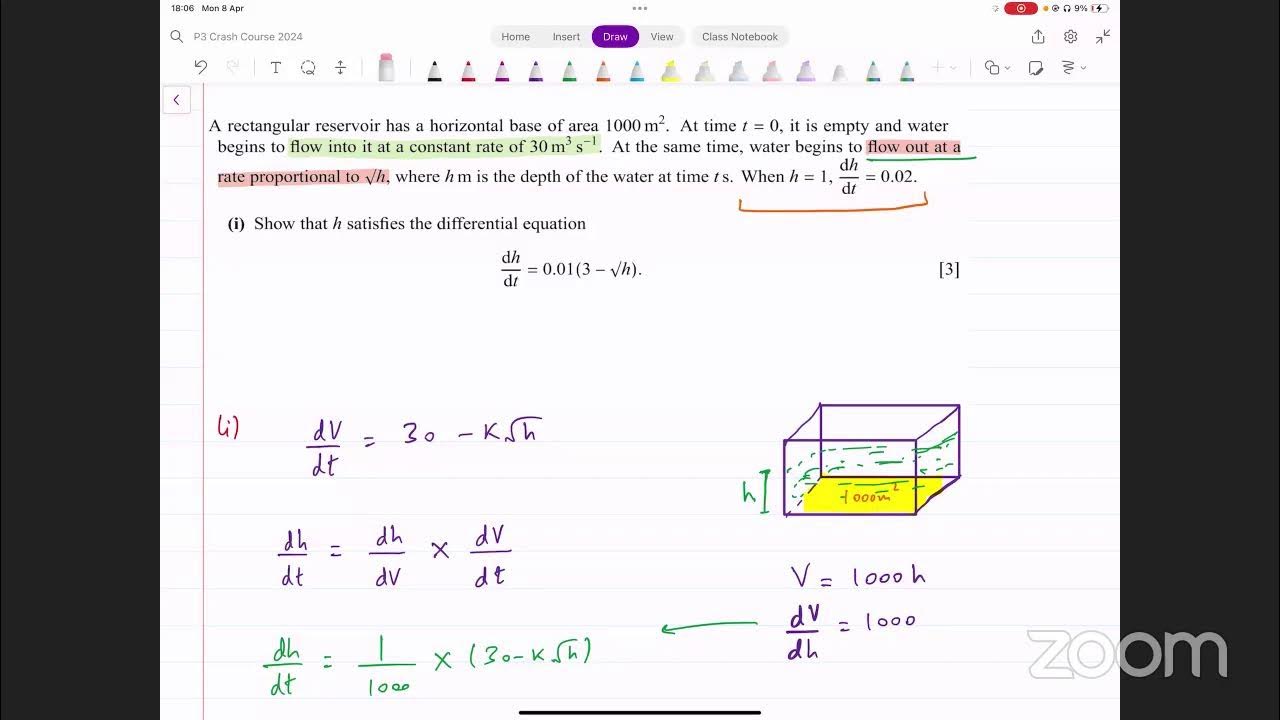 18:06 Mon 8 Apr
9%
P3 Crash Course 2024
Home Insert Draw View Class Notebook
A rectangular reservoir has a horizontal base of area 1000 m². At time t = 0, it is empty and water
begins to flow into it at a constant rate of 30 m³ s⁻¹. At the same time, water begins to flow out at a
rate proportional to √h, where h m is the depth of the water at time t s. When h = 1, dh/dt = 0.02.
(i) Show that h satisfies the differential equation
dh/dt = 0.01(3 − √h). [3]
(i) dV/dt = 30 − K√h
h 1000m²
dh/dt = dh/dV × dV/dt
V = 1000h
dV/dh = 1000
dh/dt = 1/1000 × (30−K√h)
zoom